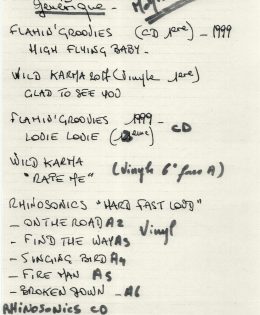 Générique -
FLAMIN' GROOVIES (CD 1ere) - 1999
HIGH FLYING BABY -
WILD KARMA (Vinyle 1ere)
GLAD TO SEE YOU
FLAMIN' GROOVIES 1999 -
LOUIE LOUIE CD
WILD KARMA
"RAPE ME" (Vinyle 6e face A)
RHINOSONICS "HARD FAST LOUD"
- ON THE ROAD A2 Vinyl
- FIND THE WAY A3
- SINGING BIRD A4
- FIRE MAN A5
- BROKEN DOWN - A6
RHINOSONICS CD